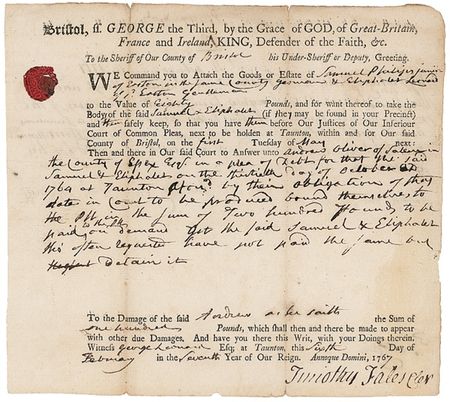 Bristol, ss. GEORGE the Third, by the Grace of GOD, of Great-Britain,
France and Ireland, KING, Defender of the Faith, &c.
To the Sheriff of Our County of Bristol his Under-Sheriff or Deputy, Greeting.
WE Command you to Attach the Goods or Estate of Samuel Phillips junior
of Easton in the same County yeoman & Eliphalet Leonard
of Easton Gentleman
to the Value of Eighty Pounds, and for want thereof to take the
Body of the said Samuel & Eliphalet (if they may be found in your Precinct)
and them safely keep, so that you have them before Our Justices of Our Inferiour
Court of Common Pleas, next to be holden at Taunton, within and for Our said
County of Bristol, on the first Tuesday of May next:
Then and there in Our said Court to Answer unto Andrew Oliver of Salem in
the County of Essex Esqr. in a plea of Debt for that the said
Samuel & Eliphalet on the thirtieth day of October AD
1764 at Taunton by their obligation of that
date in Court to be produced bound themselves to
the Plt in the sum of Two hundred Pounds to be
paid on demand yet the said Samuel & Eliphalet
tho' often requested have not paid the same but
detain it
To the Damage of the said Andrew as he saith the Sum of
one hundred Pounds, which shall then and there be made to appear
with other due Damages. And have you there this Writ, with your Doings therein.
Witness George Leonard Esq; at Taunton, this Sixth Day of
February in the Seventh Year of Our Reign. Annoque Domini, 1767
Timothy Fales Cler